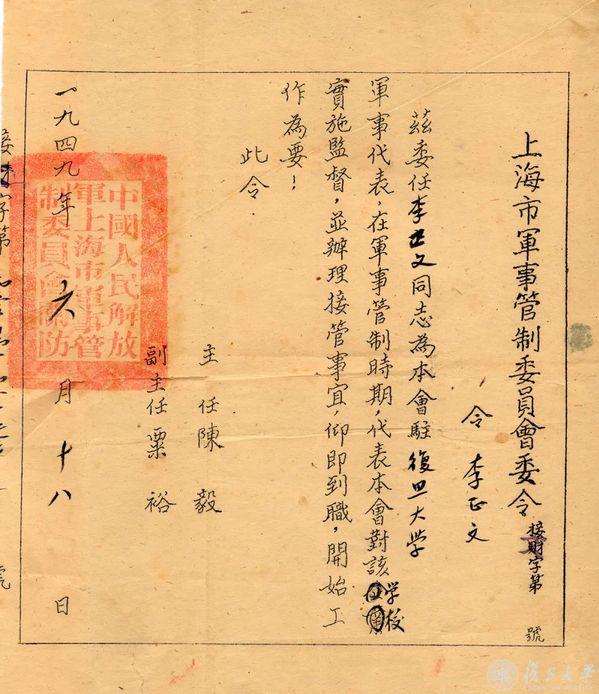 上海市軍事管制委員會委令 接財字第 號
令 李正文
茲委任李正文同志為本會駐復旦大学
軍事代表，在軍事管制時期，代表本會對該学校
實施監督，並辦理接管事宜，仰即到職，開始工
作為要！
此令．
主任陳毅
副主任粟裕
一九四九年六月十八日
中國人民解放
軍上海市軍事管
制委員會關防
字第 號
復旦大學